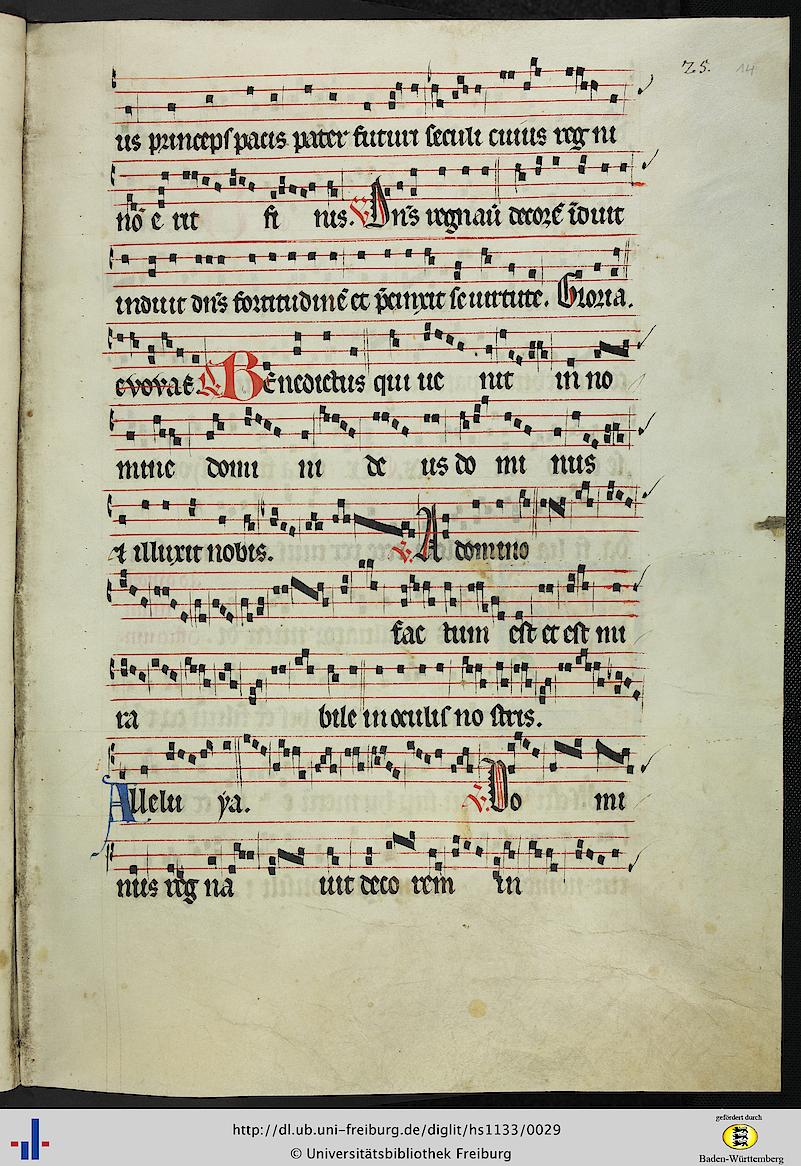 25. 14
us princeps pacis pater futuri seculi cuius reg ni
no᷎ e rit fi nis. V. Dn̄s regnau᷎ decorē īduit
induit dn̄s fortitudinē et p̄cinxit se uirtute. Gloria.
evovae Benedictus qui ue nit in no
mine domi ni de us do mi nus
et illuxit nobis. V. A domino
fac tum est et est mi
ra bile in oculis no stris.
Allelu ya. V. Do mi
nus reg na uit deco rem in
http://dl.ub.uni-freiburg.de/diglit/hs1133/0029
© Universitätsbibliothek Freiburg
gefördert durch
Baden-Württemberg